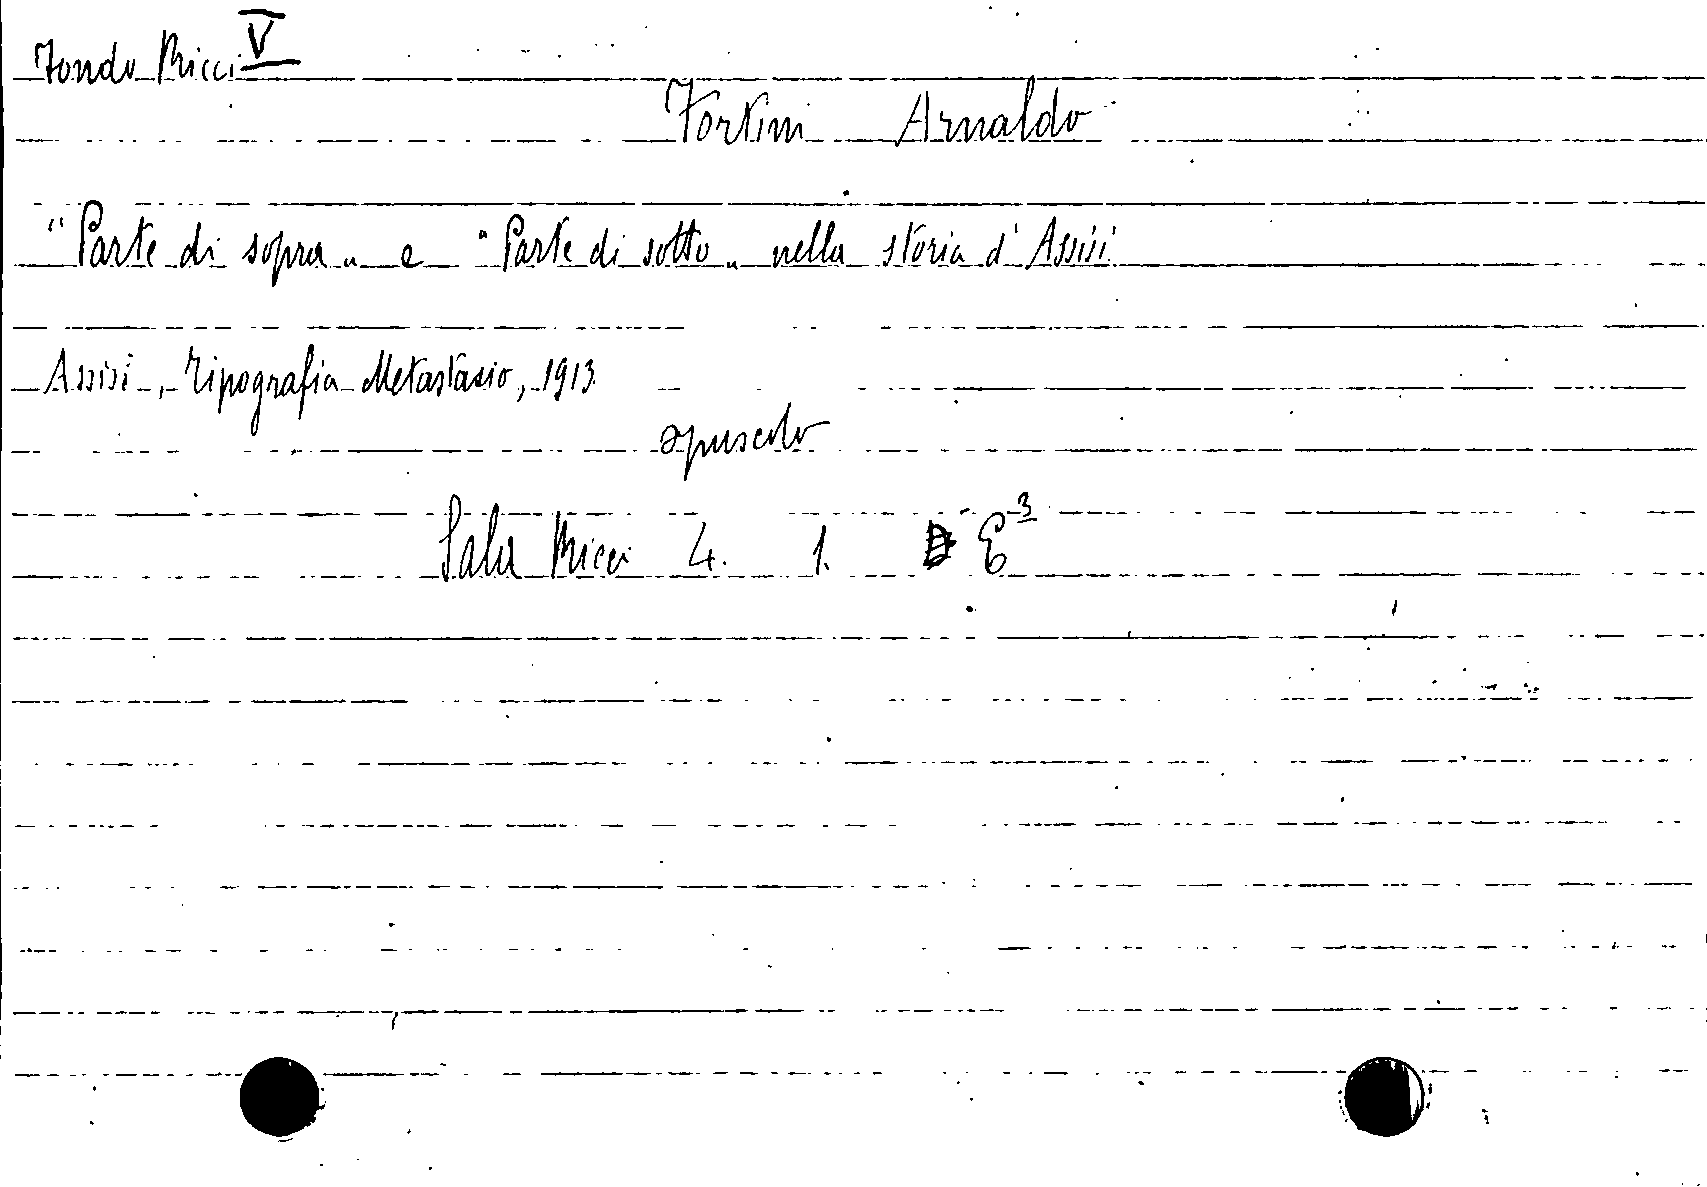 Fondo Ricci V
Fortini Arnaldo
"Parte di sopra„ e "Parte di sotto„ nella storia d'Assisi
Assisi, Tipografia Metastasio, 1913
opuscolo
Sala Ricci 4. 1. E 3